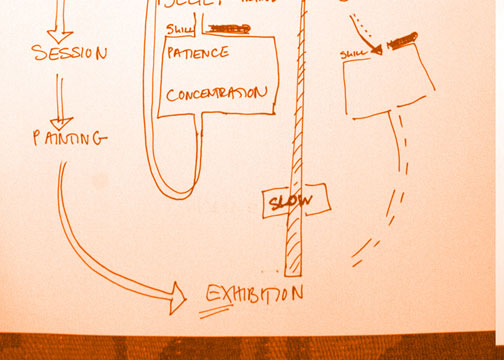 SKILL
SKILL
SESSION
PATIENCE
CONCENTRATION
PAINTING
SLOW
EXHIBITION